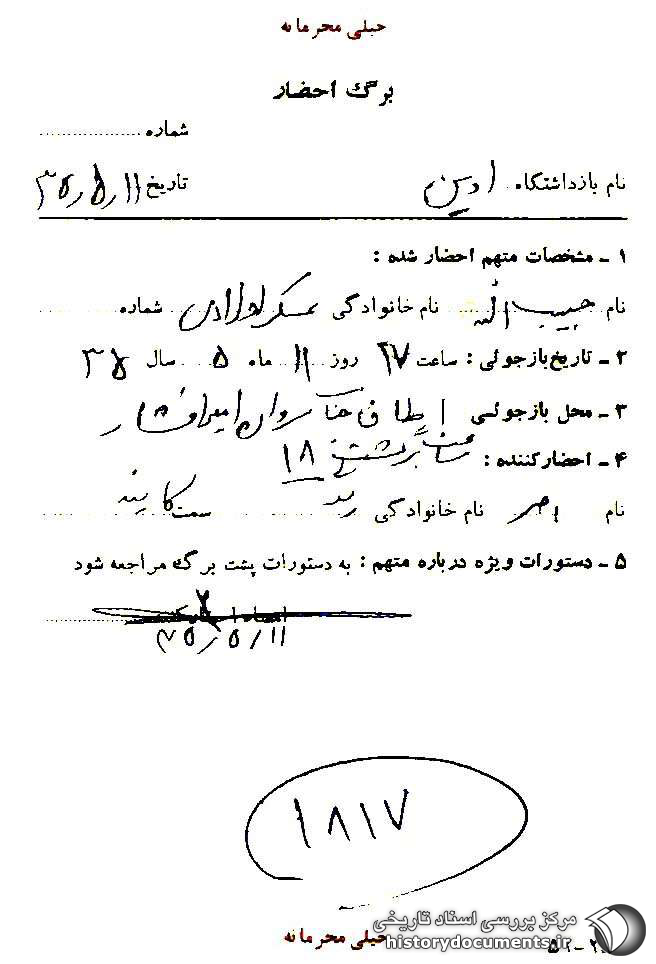 خیلی محرمانه
برگ احضار
شماره
نام بازداشتگاه اوین تاریخ ۳۵٫۵٫۱۱
۱ ـ مشخصات متهم احضار شده :
نام حبیب الله نام خانوادگی عسکراولادی شماره
۲ ـ تاریخ بازجوئی : ساعت ۱۷ روز ۱۱ ماه ۵ سال ۳۵
۳ ـ محل بازجوئی اطاق
ساعت برگشت ۱۸
۴ ـ احضار کننده :
نام نام خانوادگی سمت
۵ ـ دستورات ویژه درباره متهم : به دستورات پشت برگ مراجعه شود
۳۵٫۵/۱۱
۱۸۱۷
مرکز بررسی اسناد تاریخی
historydocuments.ir
خیلی محرمانه